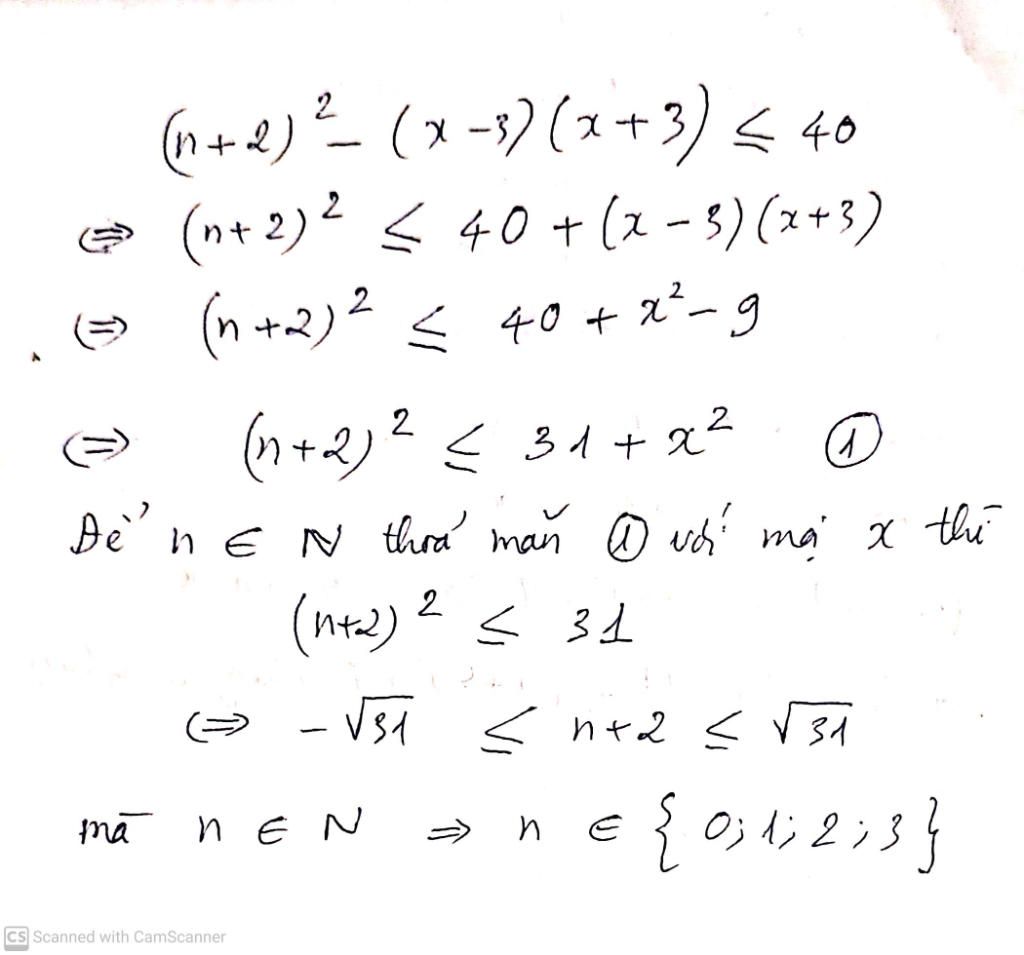 (n+2)² - (x-3)(x+3) ≤ 40
⇔ (n+2)² ≤ 40 + (x-3)(x+3)
⇔ (n+2)² ≤ 40 + x² - 9
⇔ (n+2)² ≤ 31 + x² ①
Để n ∈ N thoả mãn ① với mọi x thì
(n+2)² ≤ 31
⇔ -√31 ≤ n+2 ≤ √31
mà n ∈ N ⇒ n ∈ {0;1;2;3}
CS Scanned with CamScanner